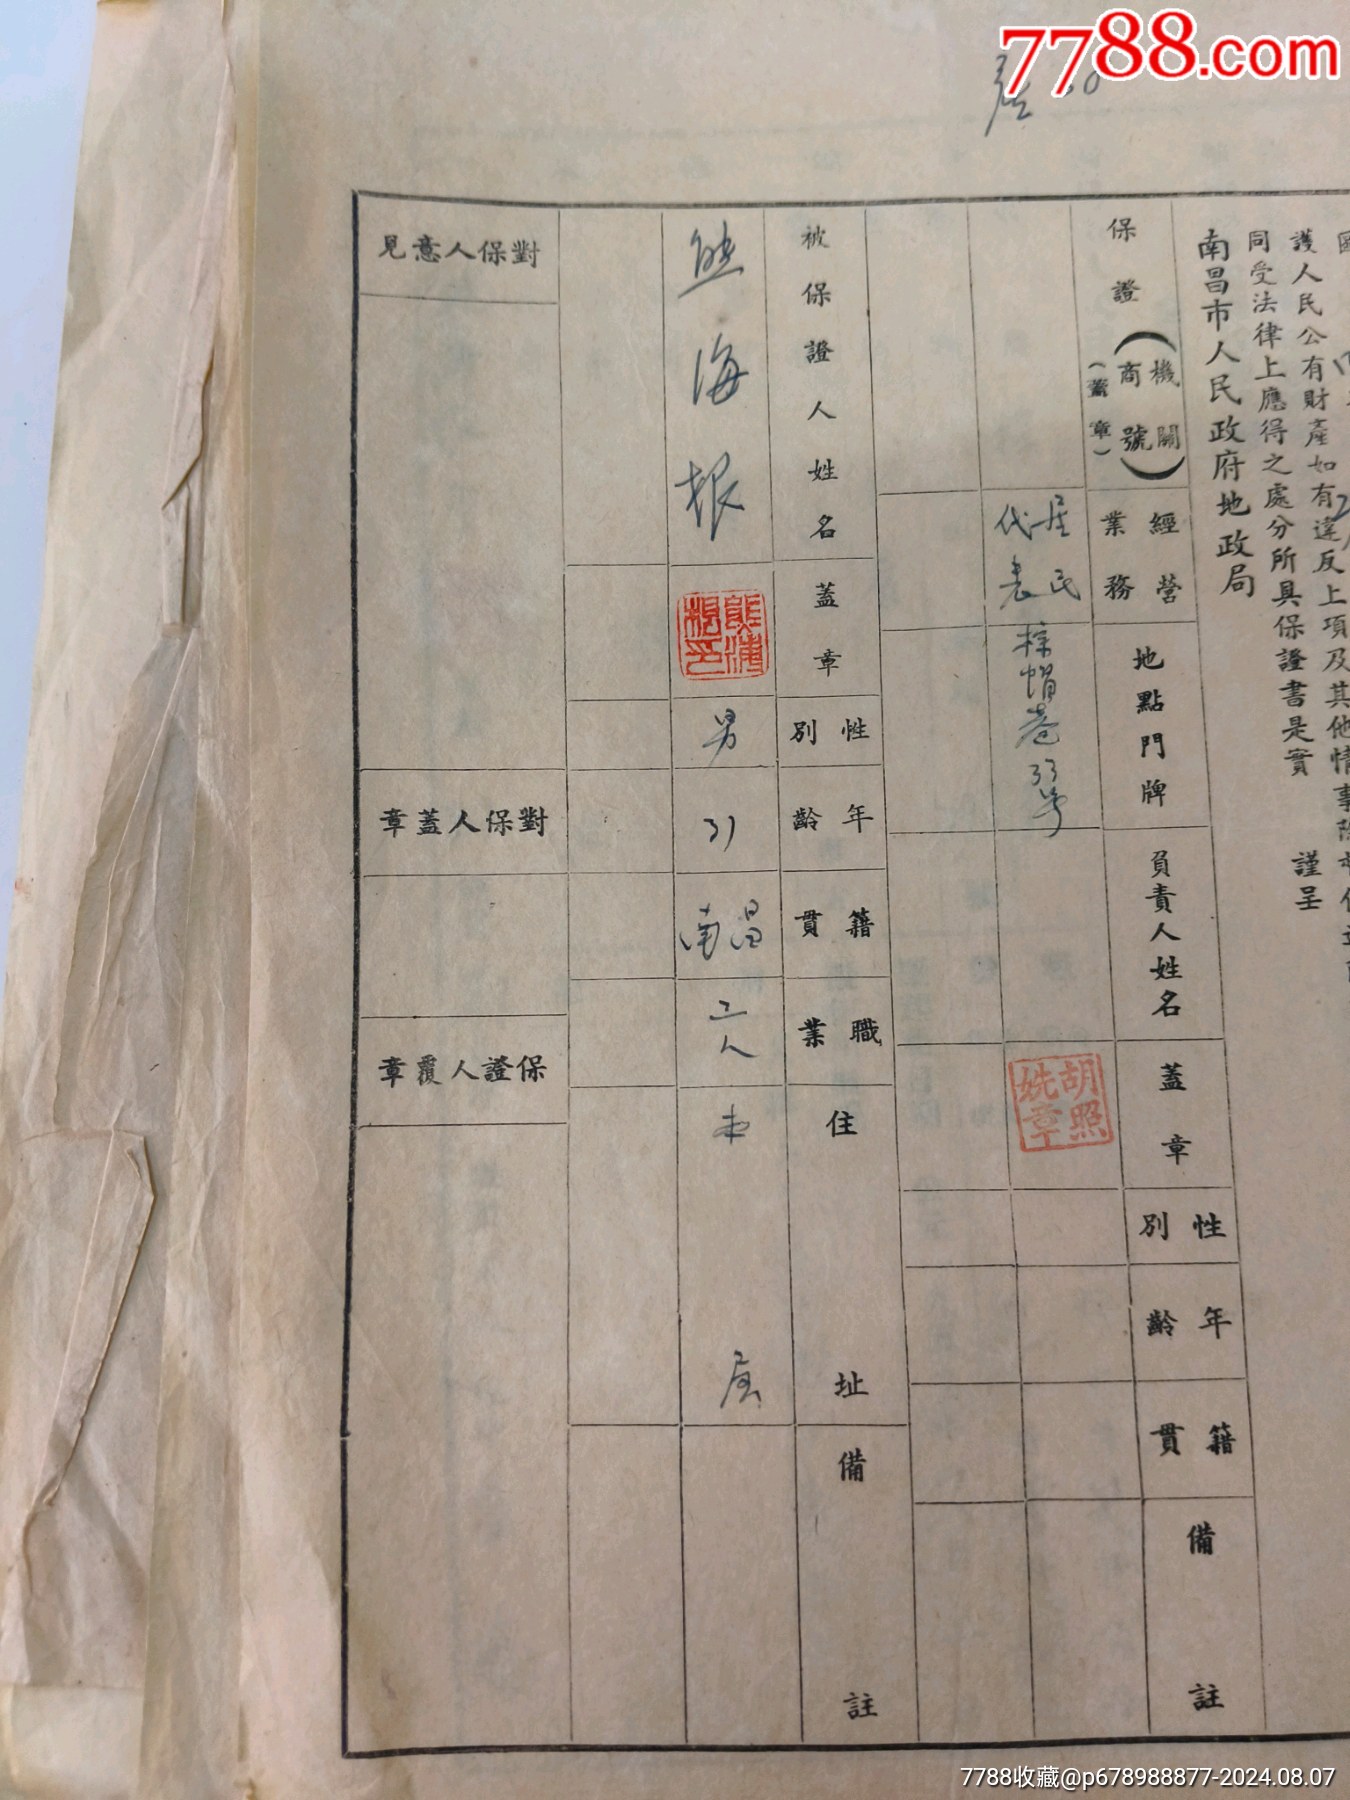 7788.com
護人民公有財產如有違反上項及其他情事除
同受法律上應得之處分所具保證書是實
謹呈
南昌市人民政府地政局
保證(機關商號)(蓋章)
經營業務
地點門牌
負責人姓名
蓋章
性別
年齡
籍貫
備註
居民代表
33号
胡照姚章
被保證人姓名
蓋章
性別
年齡
籍貫
職業
住址
備註
熊海根
熊海根印
男
31
南昌
工人
本
屋
對保人意見
對保人蓋章
保證人覆章
7788收藏@p678988877-2024.08.07